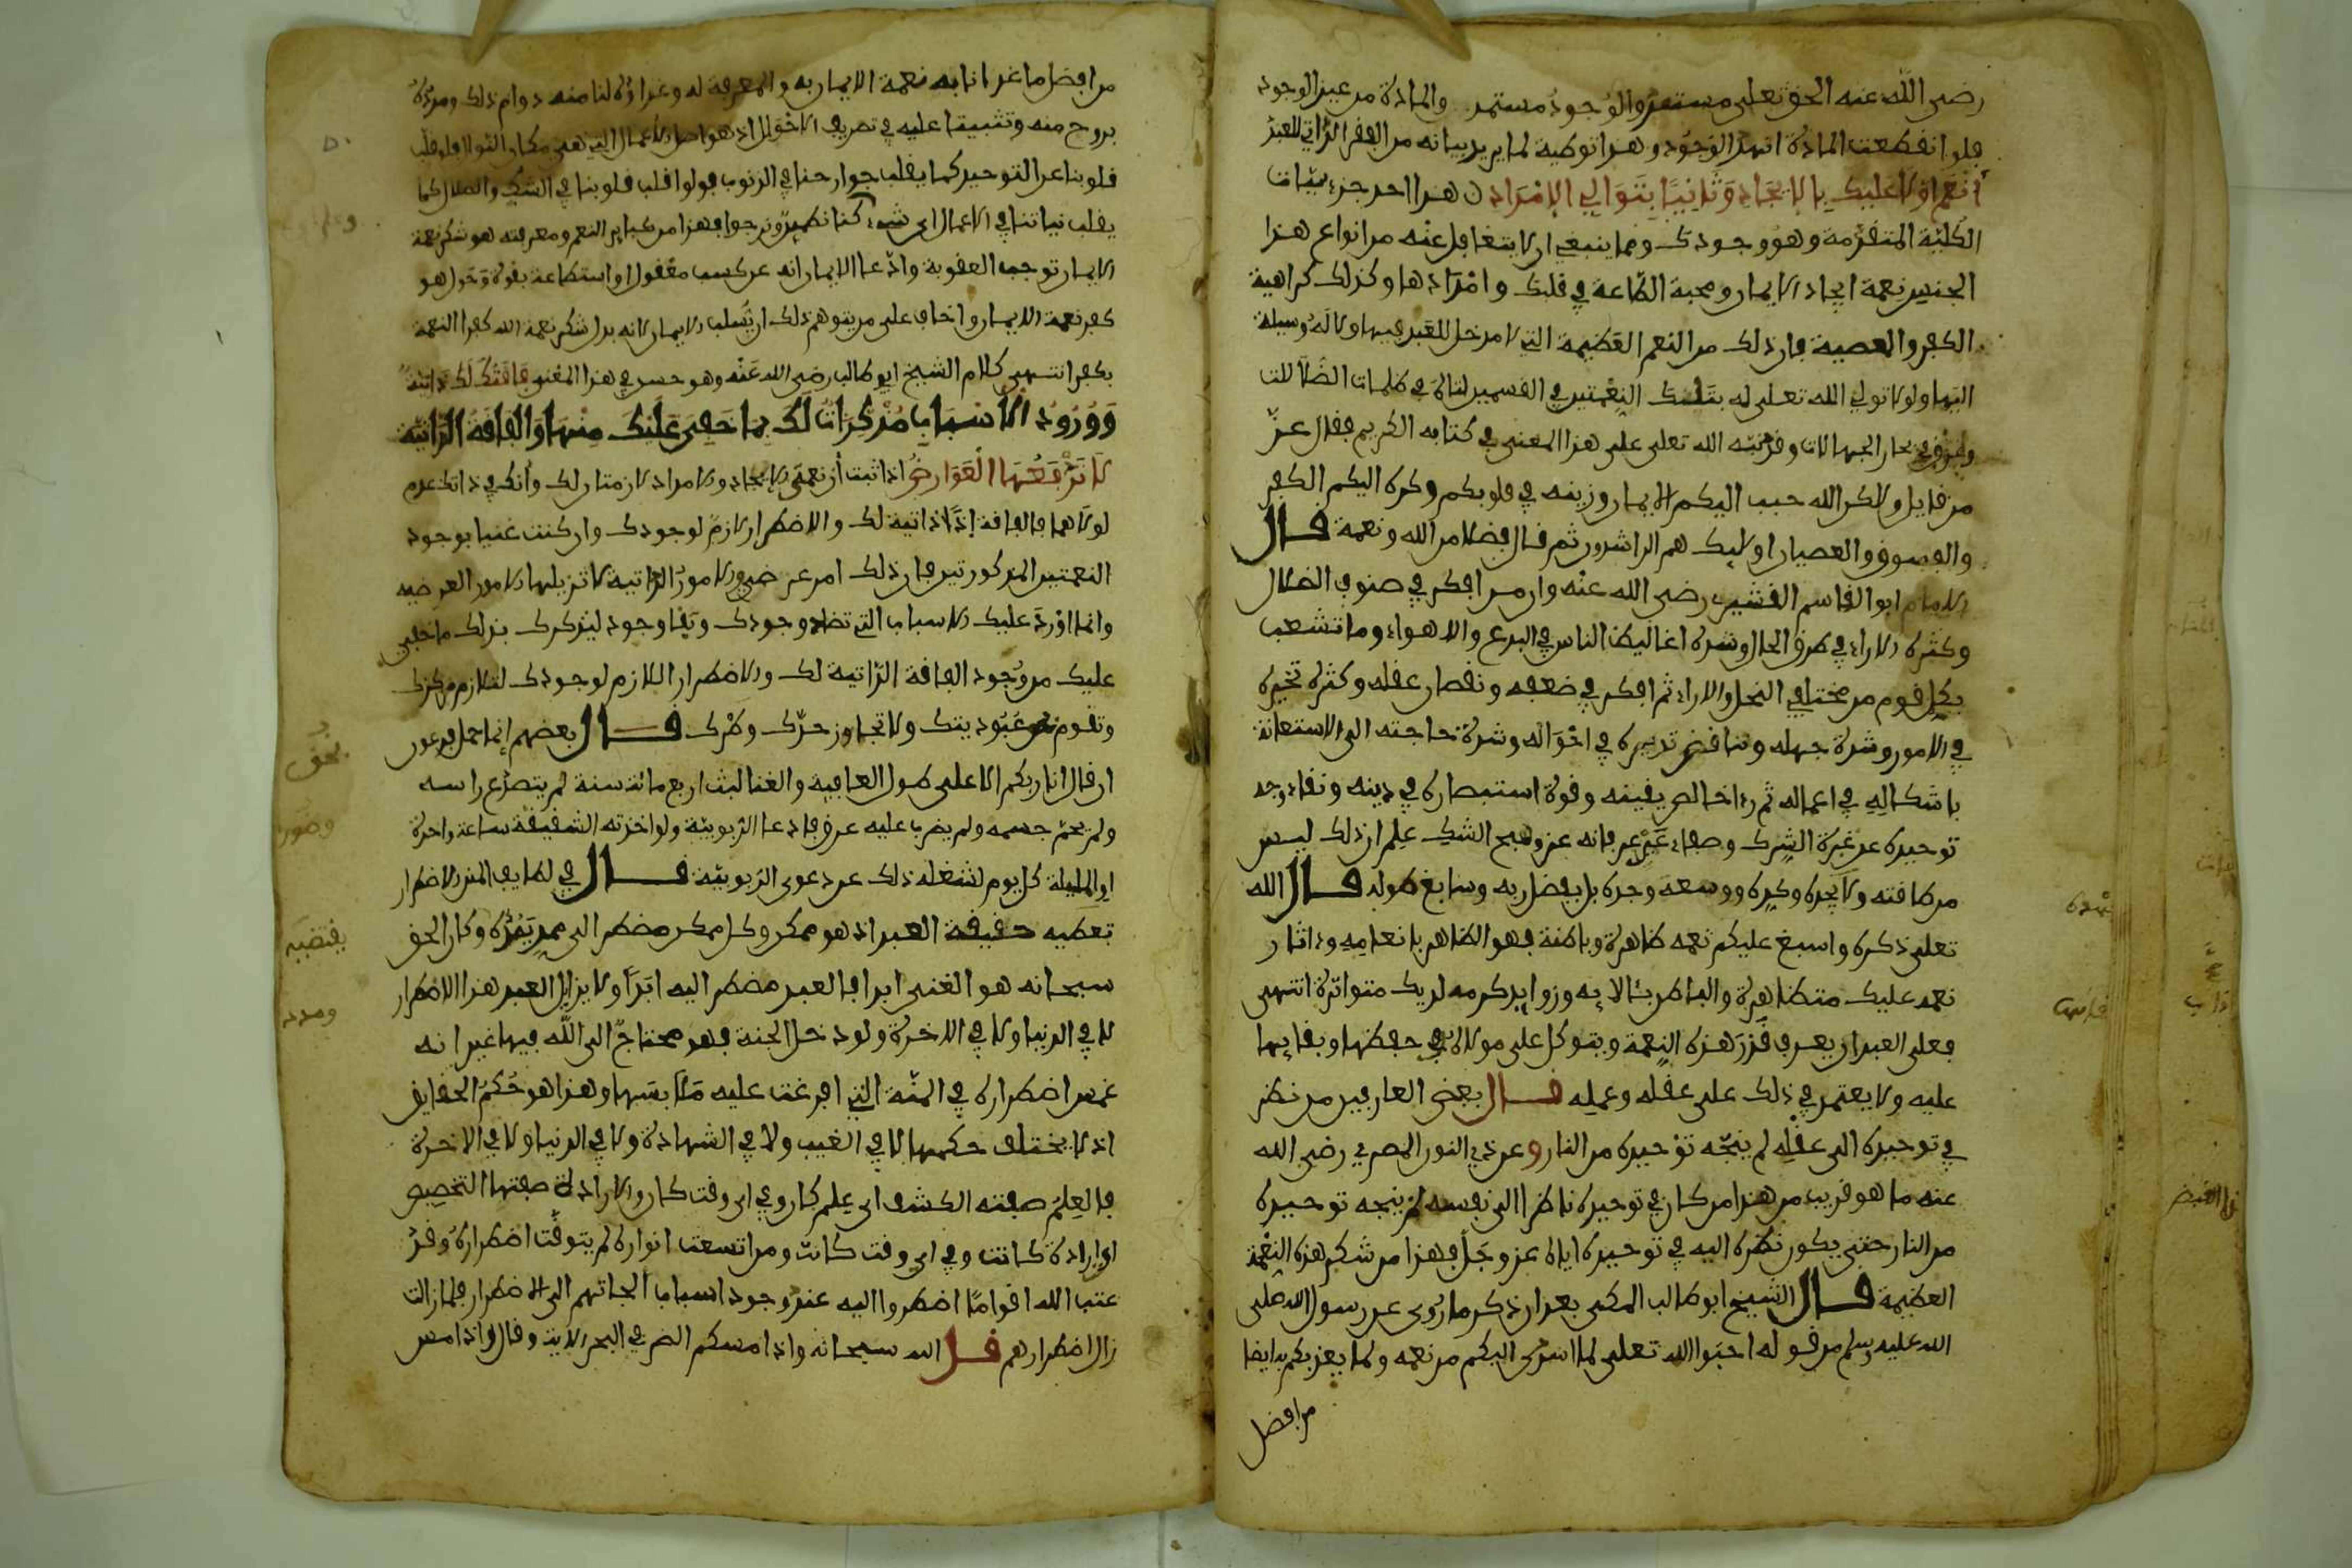 رضى الله عنه الحق تعلى مستمد والوجود مستمد والمادة من عين الوجود
فلو انقطعت المادة انهد الوجود وهذا توطية لما يريد بيانه من الفقر الذاتي للعبد
أنعم أولا عليك بالإيجاد وثانيا بتوالي الإمداد هذا احد جزءيات
الكلية المتقدمة وهو وجودك ومما ينبغي ان لا يتغافل عنه من انواع هذا
الجنس نعمة ايجاد الايمان ومحبة الطاعة في قلبك وامدادها وكذلك كراهية
الكفر والمعصية فان ذلك من النعم العظيمة التي لا مدخل للعبد فيها ولا له وسيلة
اليها ولولا تولي الله تعلى له بتلك النعمتين في القسمين لتاه في ظلمات الضلالات
وغرق في بحار الجهالات وقد نبه الله تعلى على هذا المعنى في كتابه الكريم فقال عز
من قايل ولكن الله حبب اليكم الايمان وزينه في قلوبكم وكره اليكم الكفر
والفسوق والعصيان اوليك هم الراشدون ثم قال فضلا من الله ونعمة قال
الامام ابو القاسم القشيري رضى الله عنه وان من افكر في صنوف الضلال
وكثرة الاراء في طرق المحال وشدة اغاليط الناس في البدع والاهواء وما تشعب
بكل قوم من مختلفي النحل والاراء ثم افكر في ضعفه ونقصان عقله وكثرة تحيره
في الامور وشدة جهله وتناقض تدبيره في احواله وشدة حاجته الى الاستعانة
باشكاله في اعماله ثم راى خالص يقينه وقوة استبصاره في دينه ونقاء وجد
توحيده عن غبرة الشرك وصفاء عين عرفانه عن وهج الشك علم ان ذلك ليس
من طاقته ولا بجده وكده ووسعه وجده بل بفضل ربه وسابغ طوله قال الله
تعلى ذكره واسبغ عليكم نعمه ظاهرة وباطنة فهو الظاهر بانعامه وءاثار
نعمه عليك متظاهرة والباطن بـالايه وزوايد كرمه لديك متواترة انتهى
فعلى العبد ان يعرف قدر هذه النعمة ويتوكل على مولاه في حفظها وبقايها
عليه ولا يعتمد في ذلك على عقله وعمله قال بعض العارفين من نظر
في توحيده الى عقله لم ينجه توحيده من النار وعن ذي النون المصري رضى الله
عنه ما هو قريب من هذا من كان في توحيده ناظرا الى نفسه لم ينجه توحيده
من النار حتى يكون نظره اليه في توحيده اياه عز وجل فهذا من شكر هذه النعمة
العظيمة قال الشيخ ابو طالب المكي بعد ان ذكر ما روي عن رسول الله صلى
الله عليه وسلم من قوله احبوا الله تعلى لما اسدى اليكم من نعمه ولما يغذيكم به ايضا
من افضل
من افضل ما غذانا به نعمة الايمان به والمعرفة له وغذاؤه لنا منه دوام ذلك ومدده
بروح منه وتثبيتنا عليه في تصريف الاحوال اذ هو اصل الاعمال التي هي مكان النوال فلو قلب
قلوبنا عن التوحيد كما يقلب جوارحنا في الذنوب ولو قلب قلوبنا في الشك والضلال كما
يقلب نياتنا في الاعمال اى شيء كنا نصير ونرجوا فهذا من كباير النعم ومعرفته هو شكر نعمة
الايمان توجب العقوبة وادعا الايمان انه عن كسب معقول او استطاعة بقوة وحول هو
كفر نعمة الايمان واخاف على من يتوهم ذلك ان يسلب الايمان لانه بدل شكر نعمة الله كفرا النعمة
بكفر انتهى كلام الشيخ ابو طالب رضى الله عنه وهو حسن في هذا المعنى فاقتك لك ذاتية
وورود الأسباب مذكرات لك بما خفي عليك منها والفاقة الذاتية
لا ترفعها العوارض اذا ثبت ان نعمتي الايجاد والامداد لازمتان لك وانك في ذاتك عدم
لولاهما فالفاقة إذا ذاتية لك والاضطرار لازم لوجودك وان كنت غنيا بوجود
النعمتين المذكورتين فان ذلك امر عرضي والامور الذاتية لا تزيلها الامور العرضية
وانما اورد عليك الاسباب التي تضاد وجودك وبقا وجود ليذكرك بذلك ما خفي
عليك من وجود الفاقة الذاتية لك والاضطرار اللازم لوجودك لتلازم مركزك
وتقوم عبوديتك ولا تجاوز حدك وطرك قال بعضهم إنما حمل فرعون
ان قال انا ربكم الاعلى طول العافية والغنا لبث اربع مائة سنة لم يتصدع راسه
ولم يحم جسمه ولم يضرب عليه عرق فادعا الربوبية ولو اخذته الشقيقة ساعة واحدة
او المليلة كل يوم لشغله ذلك عن دعوى الربوبية قال في لطايف المنن الاضطرار
تعطيه حقيقة العبد اذ هو ممكن وكل ممكن مضطر الى ممد يمده وكان الحق
سبحانه هو الغني ابدا فالعبد مضطر اليه ابدا ولا يزايل العبد هذا الاضطرار
لا في الدنيا ولا في الاخرة ولو دخل الجنة فهو محتاج الى الله فيها غير انه
غمس اضطراره في المنة التي افرغت عليه ملابسها وهذا هو حكم الحقايق
اذ لا يختلف حكمها لا في الغيب ولا في الشهادة ولا في الدنيا ولا في الاخرة
فالعلم صفته الكشف اى علم كان وفي اى وقت كان والارادة صفتها التخصيص
اى ارادة كانت وفي اى وقت كانت ومن اتسعت انواره لم يتوقت اضطراره وقد
عتب الله اقواما اضطروا اليه عند وجود اسباب الجاتهم الى الاضطرار فلما زالت
زال اضطرارهم قال الله سبحانه واذا مسكم الضر في البحر الاية وقال واذا مس
نحق
يقتضيه
ومدده